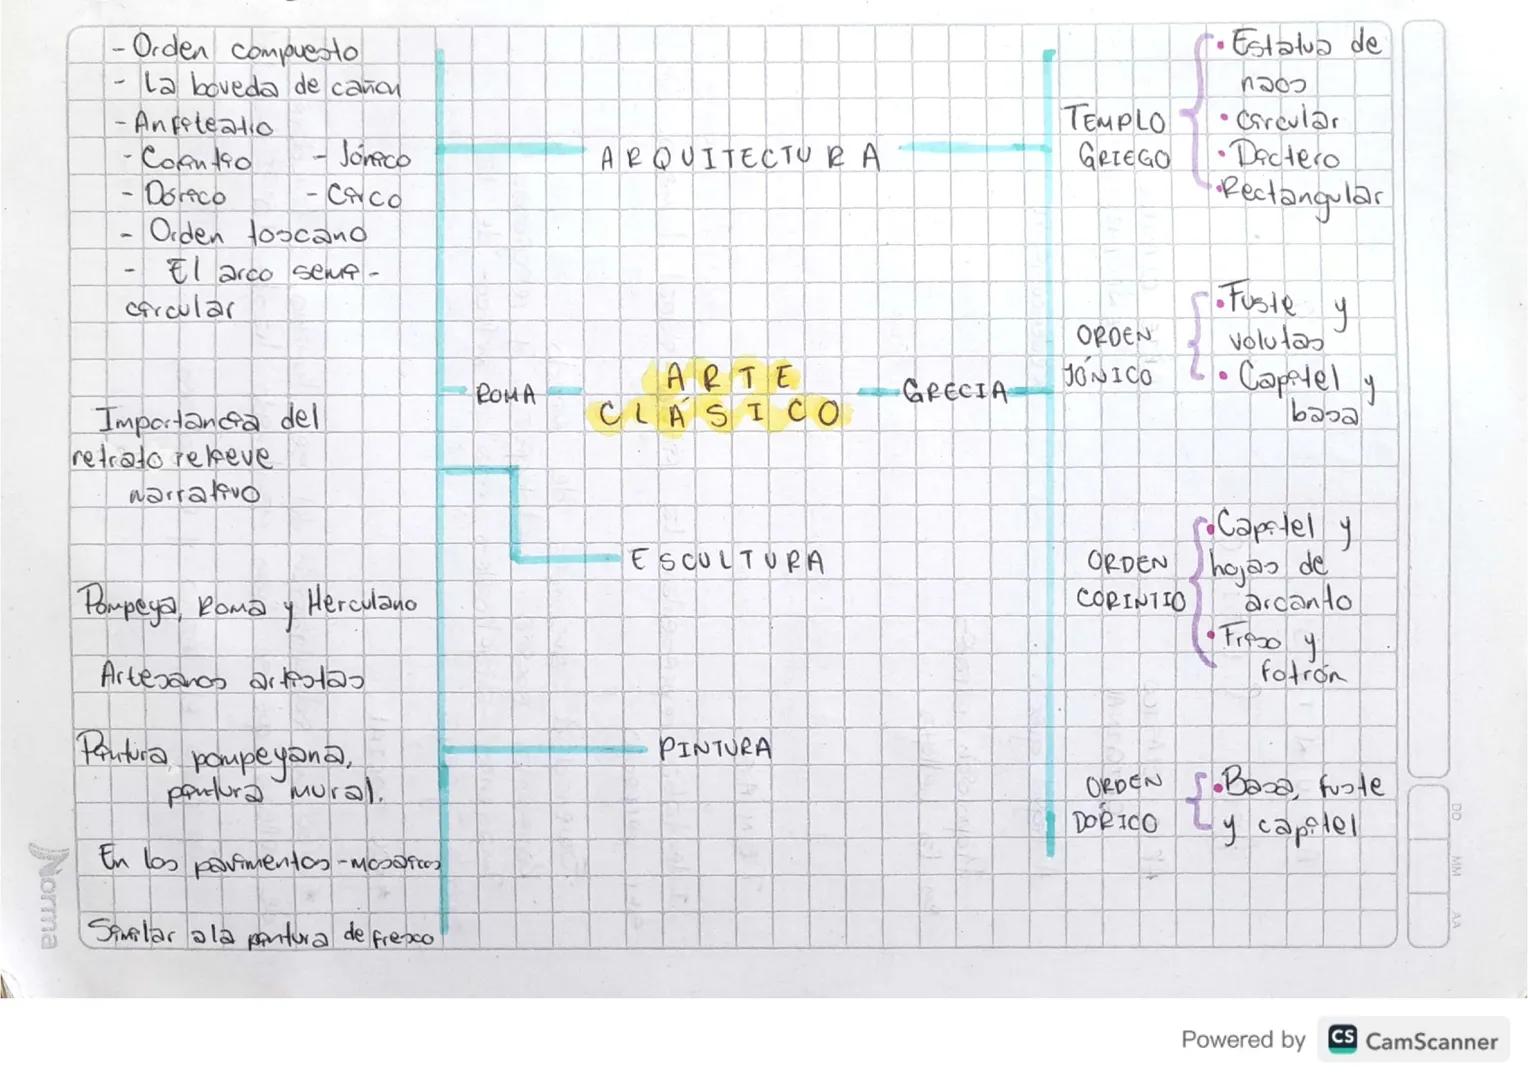 - Orden compuesto
- La boveda de cañon
- Anfiteatro
- Corintio - Jónico
- Dórico - Circo
- Orden toscano
- El arco semi-
circular
Importancia del
retrato relieve
narrativo
Pompeya, Roma y Herculano
Artesanos artistas
Pintura pompeyana,
pintura mural.
En los pavimentos - mosaicos
Similar a la pintura de fresco
ARQUITECTURA
ROMA
ARTE
CLÁSICO
GRECIA
ESCULTURA
PINTURA
TEMPLO
GRIEGO
• Estatua de
naos
• Circular
• Díctero
• Rectangular
ORDEN
JÓNICO
• Fuste y
volutas
• Capitel y
basa
ORDEN
CORINTIO
• Capitel y
hojas de
arcanto
• Friso y
fotrón
ORDEN
DÓRICO
• Basa, fuste
y capitel
Norma
DD MM AA
Powered by CS CamScanner